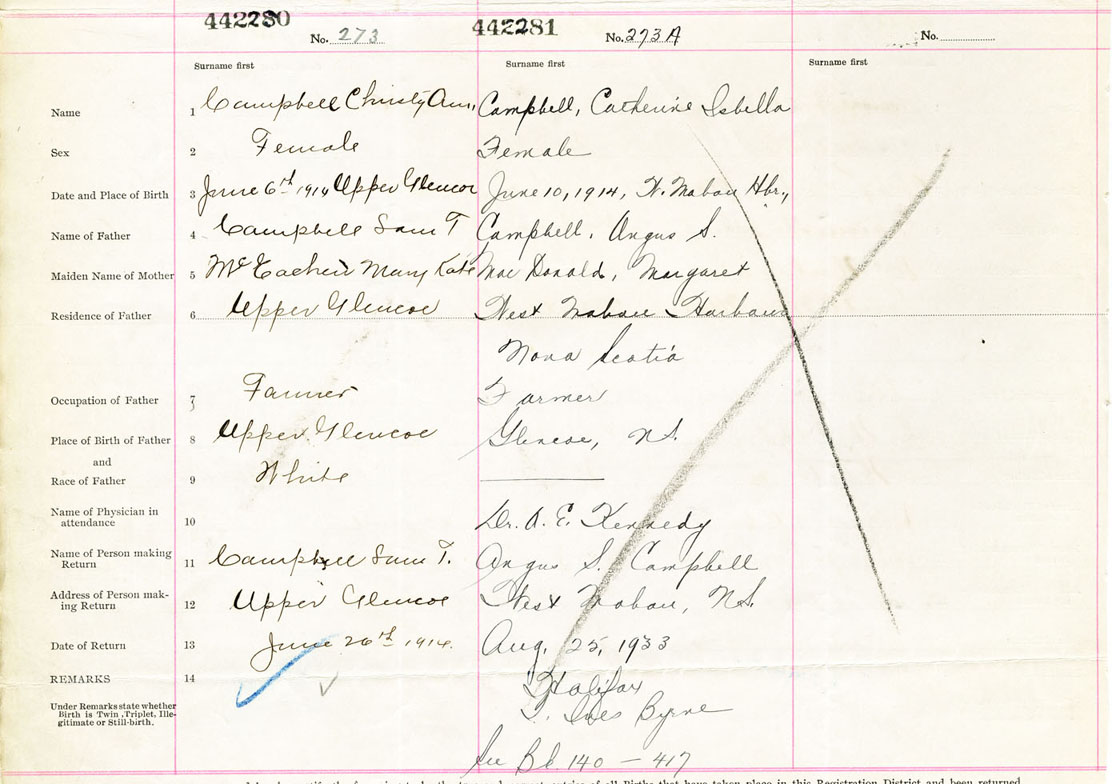 442280 442281
No. 273 No. 273 A No.
Surname first Surname first Surname first
Name 1 Campbell Christy Ann, Campbell, Catherine Isbella
Sex 2 Female Female
Date and Place of Birth 3 June 6th 1914 Upper Glencoe June 10, 1914, W. Mabou Hbr.,
Name of Father 4 Campbell Sam T Campbell, Angus S.
Maiden Name of Mother 5 McEachen Mary Kate MacDonald, Margaret
Residence of Father 6 Upper Glencoe West Mabou Harbour
Nova Scotia
Occupation of Father 7 Farmer Farmer
Place of Birth of Father 8 Upper Glencoe Glencoe, N.S.
and
Race of Father 9 White
Name of Physician in
attendance 10 Dr. A. E. Kennedy
Name of Person making
Return 11 Campbell Sam T. Angus S. Campbell
Address of Person mak-
ing Return 12 Upper Glencoe West Mabou, N.S.
Date of Return 13 June 26th 1914. Aug. 25, 1933
REMARKS 14 Halifax
Under Remarks state whether
Birth is Twin, Triplet, Ille-
gitimate or Still-birth.
Byrne
See 140 - 417
of all Births that have taken place in this Registration District and been returned